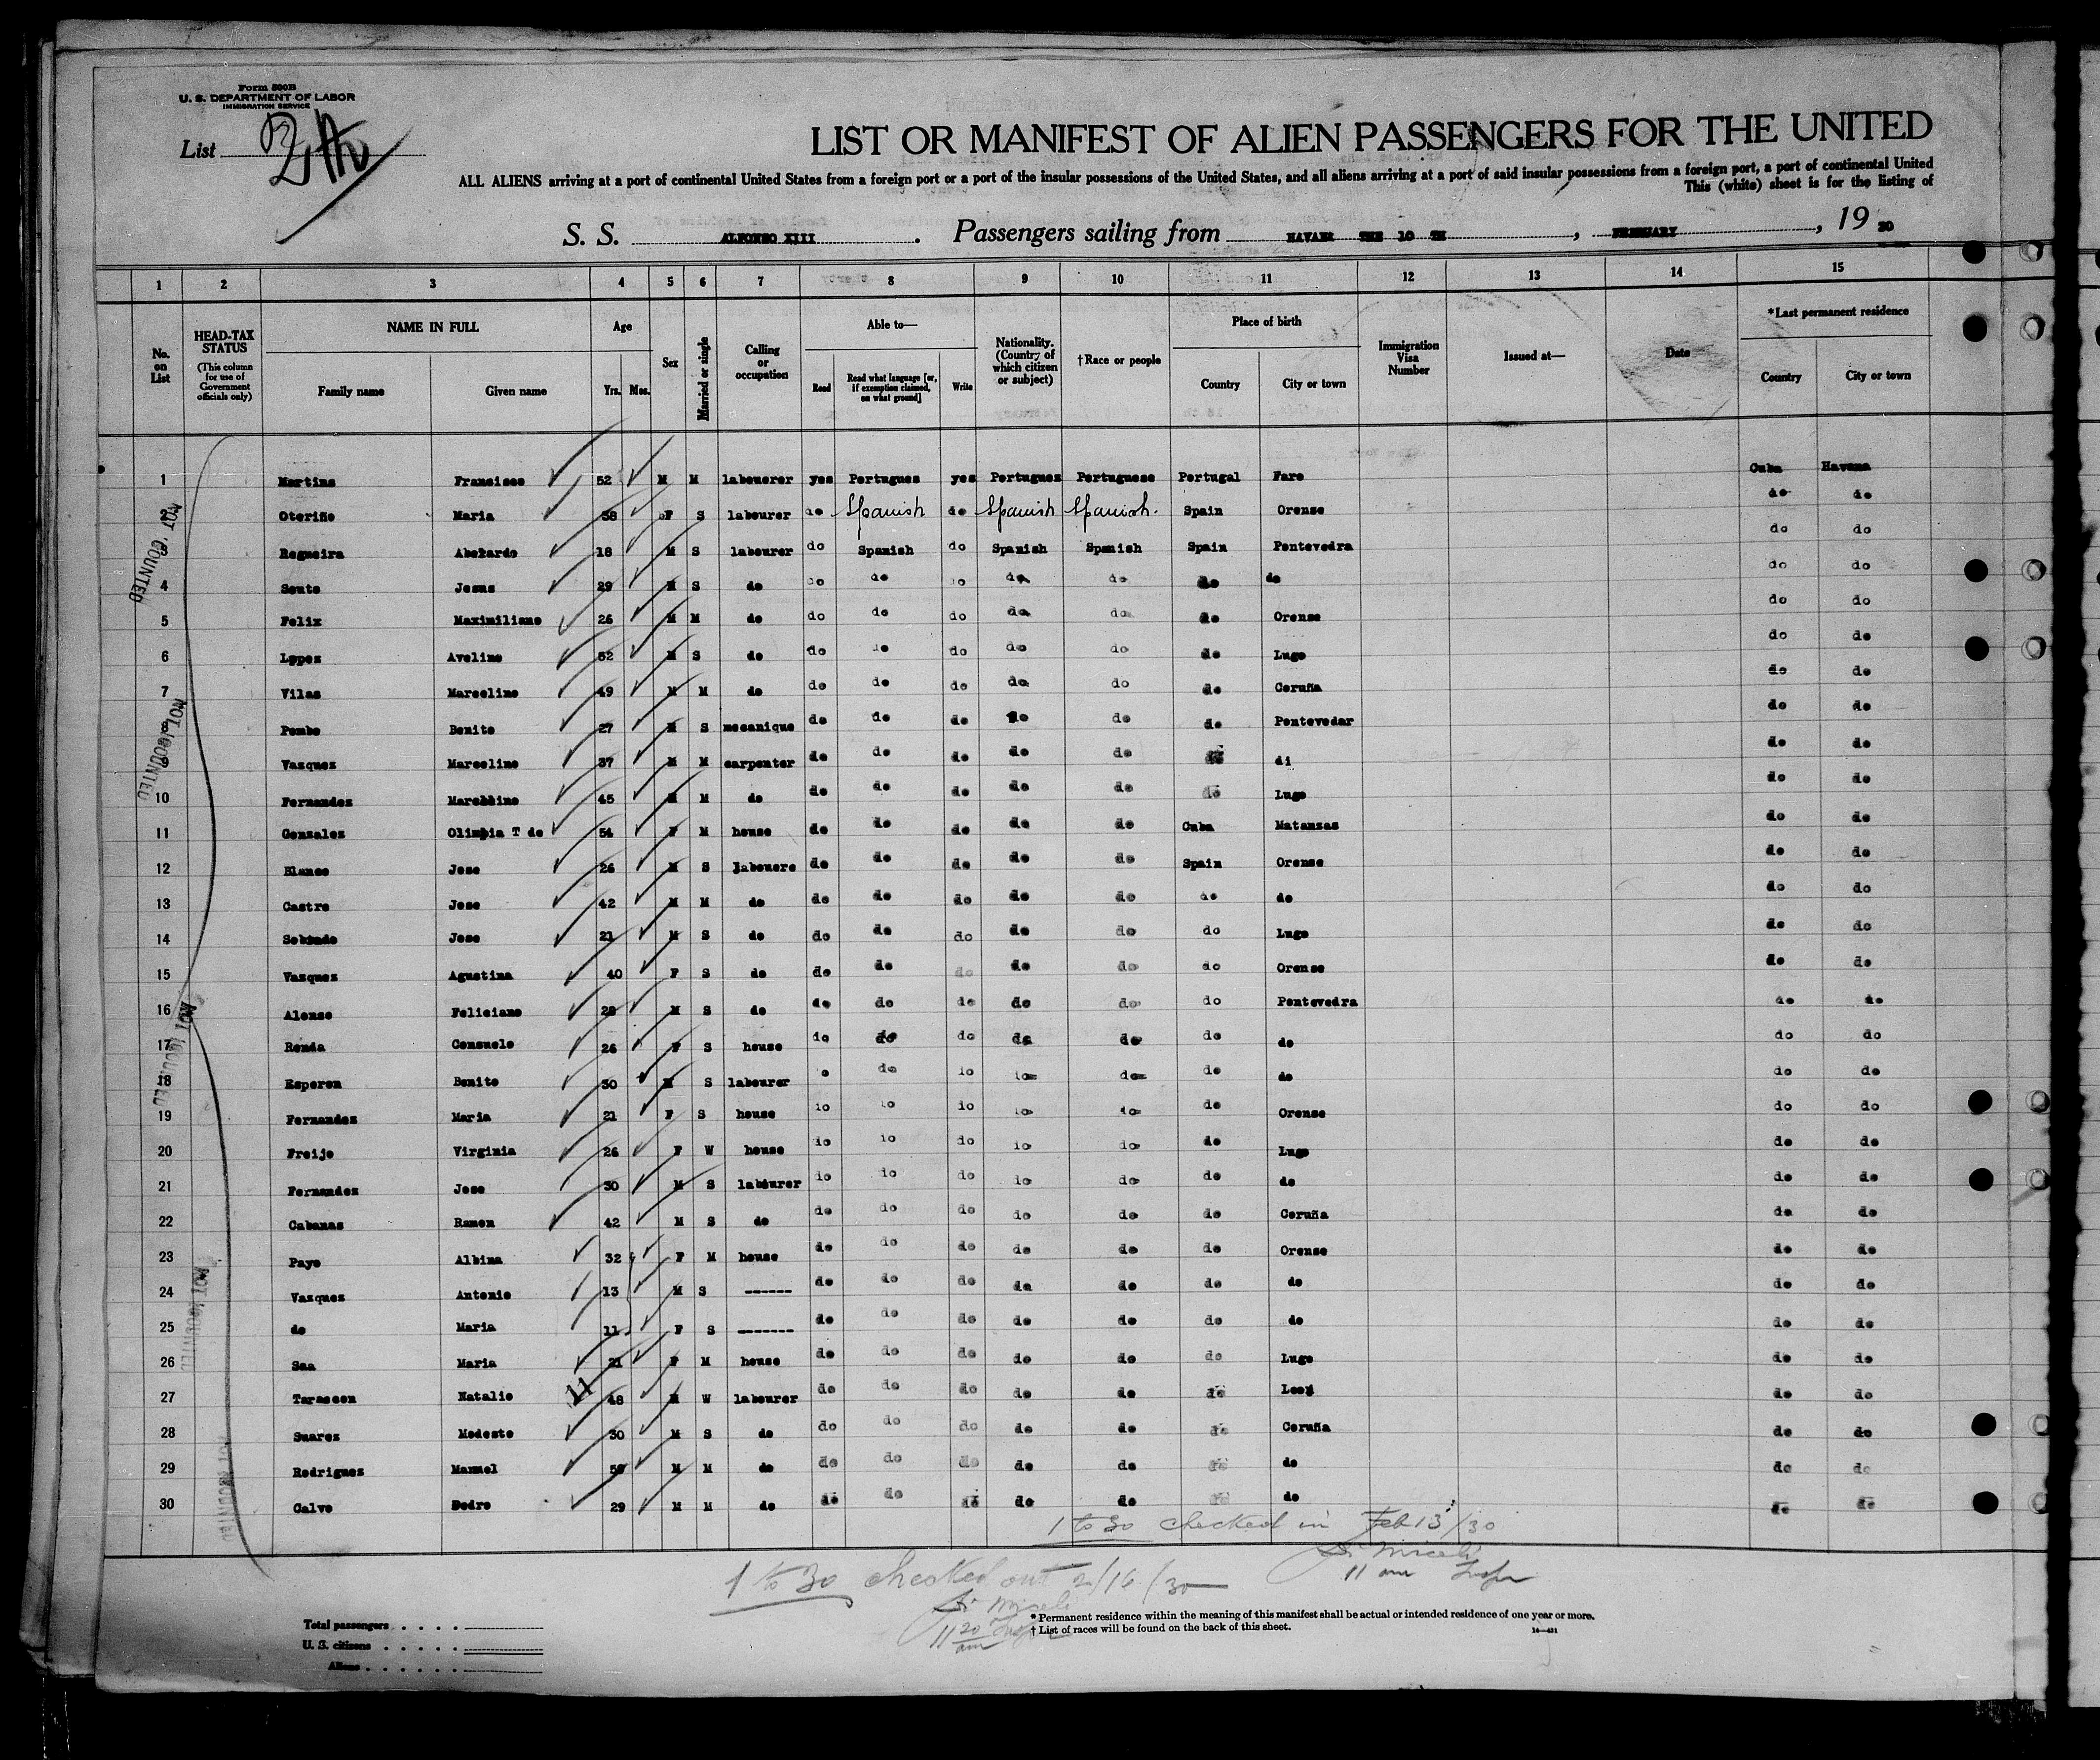 Form 500B
U. S. DEPARTMENT OF LABOR
IMMIGRATION SERVICE
List
LIST OR MANIFEST OF ALIEN PASSENGERS FOR THE UNITED
ALL ALIENS arriving at a port of continental United States from a foreign port or a port of the insular possessions of the United States, and all aliens arriving at a port of said insular possessions from a foreign port, a port of continental United
This (white) sheet is for the listing of
S. S. ALFONSO XIII. Passengers sailing from HAVANA THE 10 TH, FEBRUARY, 19 30
1 2 3 4 5 6 7 8 9 10 11 12 13 14 15
No. on List
HEAD-TAX STATUS (This column for use of Government officials only)
NAME IN FULL Family name Given name
Age Yrs. Mos.
Sex
Married or single
Calling or occupation
Able to— Read Read what language [or, if exemption claimed, on what ground] Write
Nationality. (Country of which citizen or subject)
†Race or people
Place of birth Country City or town
Immigration Visa Number
Issued at—
Date
*Last permanent residence Country City or town
1 Martins Francisco 52 M M labouerer yes Portugues yes Portugues Portuguese Portugal Faro Cuba Havana
2 Oteriño Maria 38 F S labourer do Spanish do Spanish Spanish. Spain Orense do do
3 Regueira Abelardo 18 M S labourer do Spanish do Spanish Spanish Spain Pontevedra do do
4 Souto Jesus 29 M S do do do do do do do do do do
5 Felix Maximiliano 26 M M do do do do do do do Orense do do
6 Lopez Avelino 52 M S do do do do do do do Lugo do do
7 Vilas Marcelino 49 M M do do do do do do do Coruña do do
8 Pombo Benito 27 M S mecanique do do do do do do Pontevedar do do
9 Vazquez Marcelino 37 M M carpenter do do do do do do di do do
10 Fernandez 45 M M do do do do do do do Lugo do do
11 Gonzalez Olimpia T de 54 F M house do do do do do Cuba Matanzas do do
12 Blanco Jose 26 M S labouere do do do do do Spain Orense do do
13 Castro Jose 42 M M do do do do do do do do do do
14 Jose 21 M S do do do do do do do Lugo do do
15 Vazquez Agustina 40 F S do do do do do do do Orense do do
16 Alonso Feliciano 28 M S do do do do do do do Pontevedra do do
17 Renda Consuelo 26 F S house do do do do do do do do do
18 Esperon Benito 30 M S labourer o do io io do do do do do
19 Fernandez Maria 21 F S house io io io io io do Orense do do
20 Freijo Virginia 26 F W house io io do io io do Lugo do do
21 Fernandez Jose 30 M S labourer io io do io do do do do do
22 Cabanas Ramon 42 M S do do do do do do do Coruña do do
23 Payo Albina 32 F M house do do do do do do Orense do do
24 Vazquez Antonio 13 M S ------ do do do do do do do do do
25 do Maria 11 F S ------- do do do do do do do do do
26 Saa Maria 21 F M house do do do do do do Lugo do do
27 Tarascon Natalio 48 M W labourer do do do do do do Leon do do
28 Suarez Modesto 30 M S do do do do do do do Coruña do do
29 Rodriguez Manuel M M do do do do do do do do do do
30 Calvo Pedro 29 M M do do do do do do do do do do
NOT COUNTED
NOT COUNTED
NOT COUNTED
NOT COUNTED
NOT COUNTED
1 to 30 checked in Feb 13/30
11 am Insp
1 to 30 checked out 2/16/30
11 20 am Insp
* Permanent residence within the meaning of this manifest shall be actual or intended residence of one year or more.
† List of races will be found on the back of this sheet.
Total passengers
U. S. citizens
Aliens